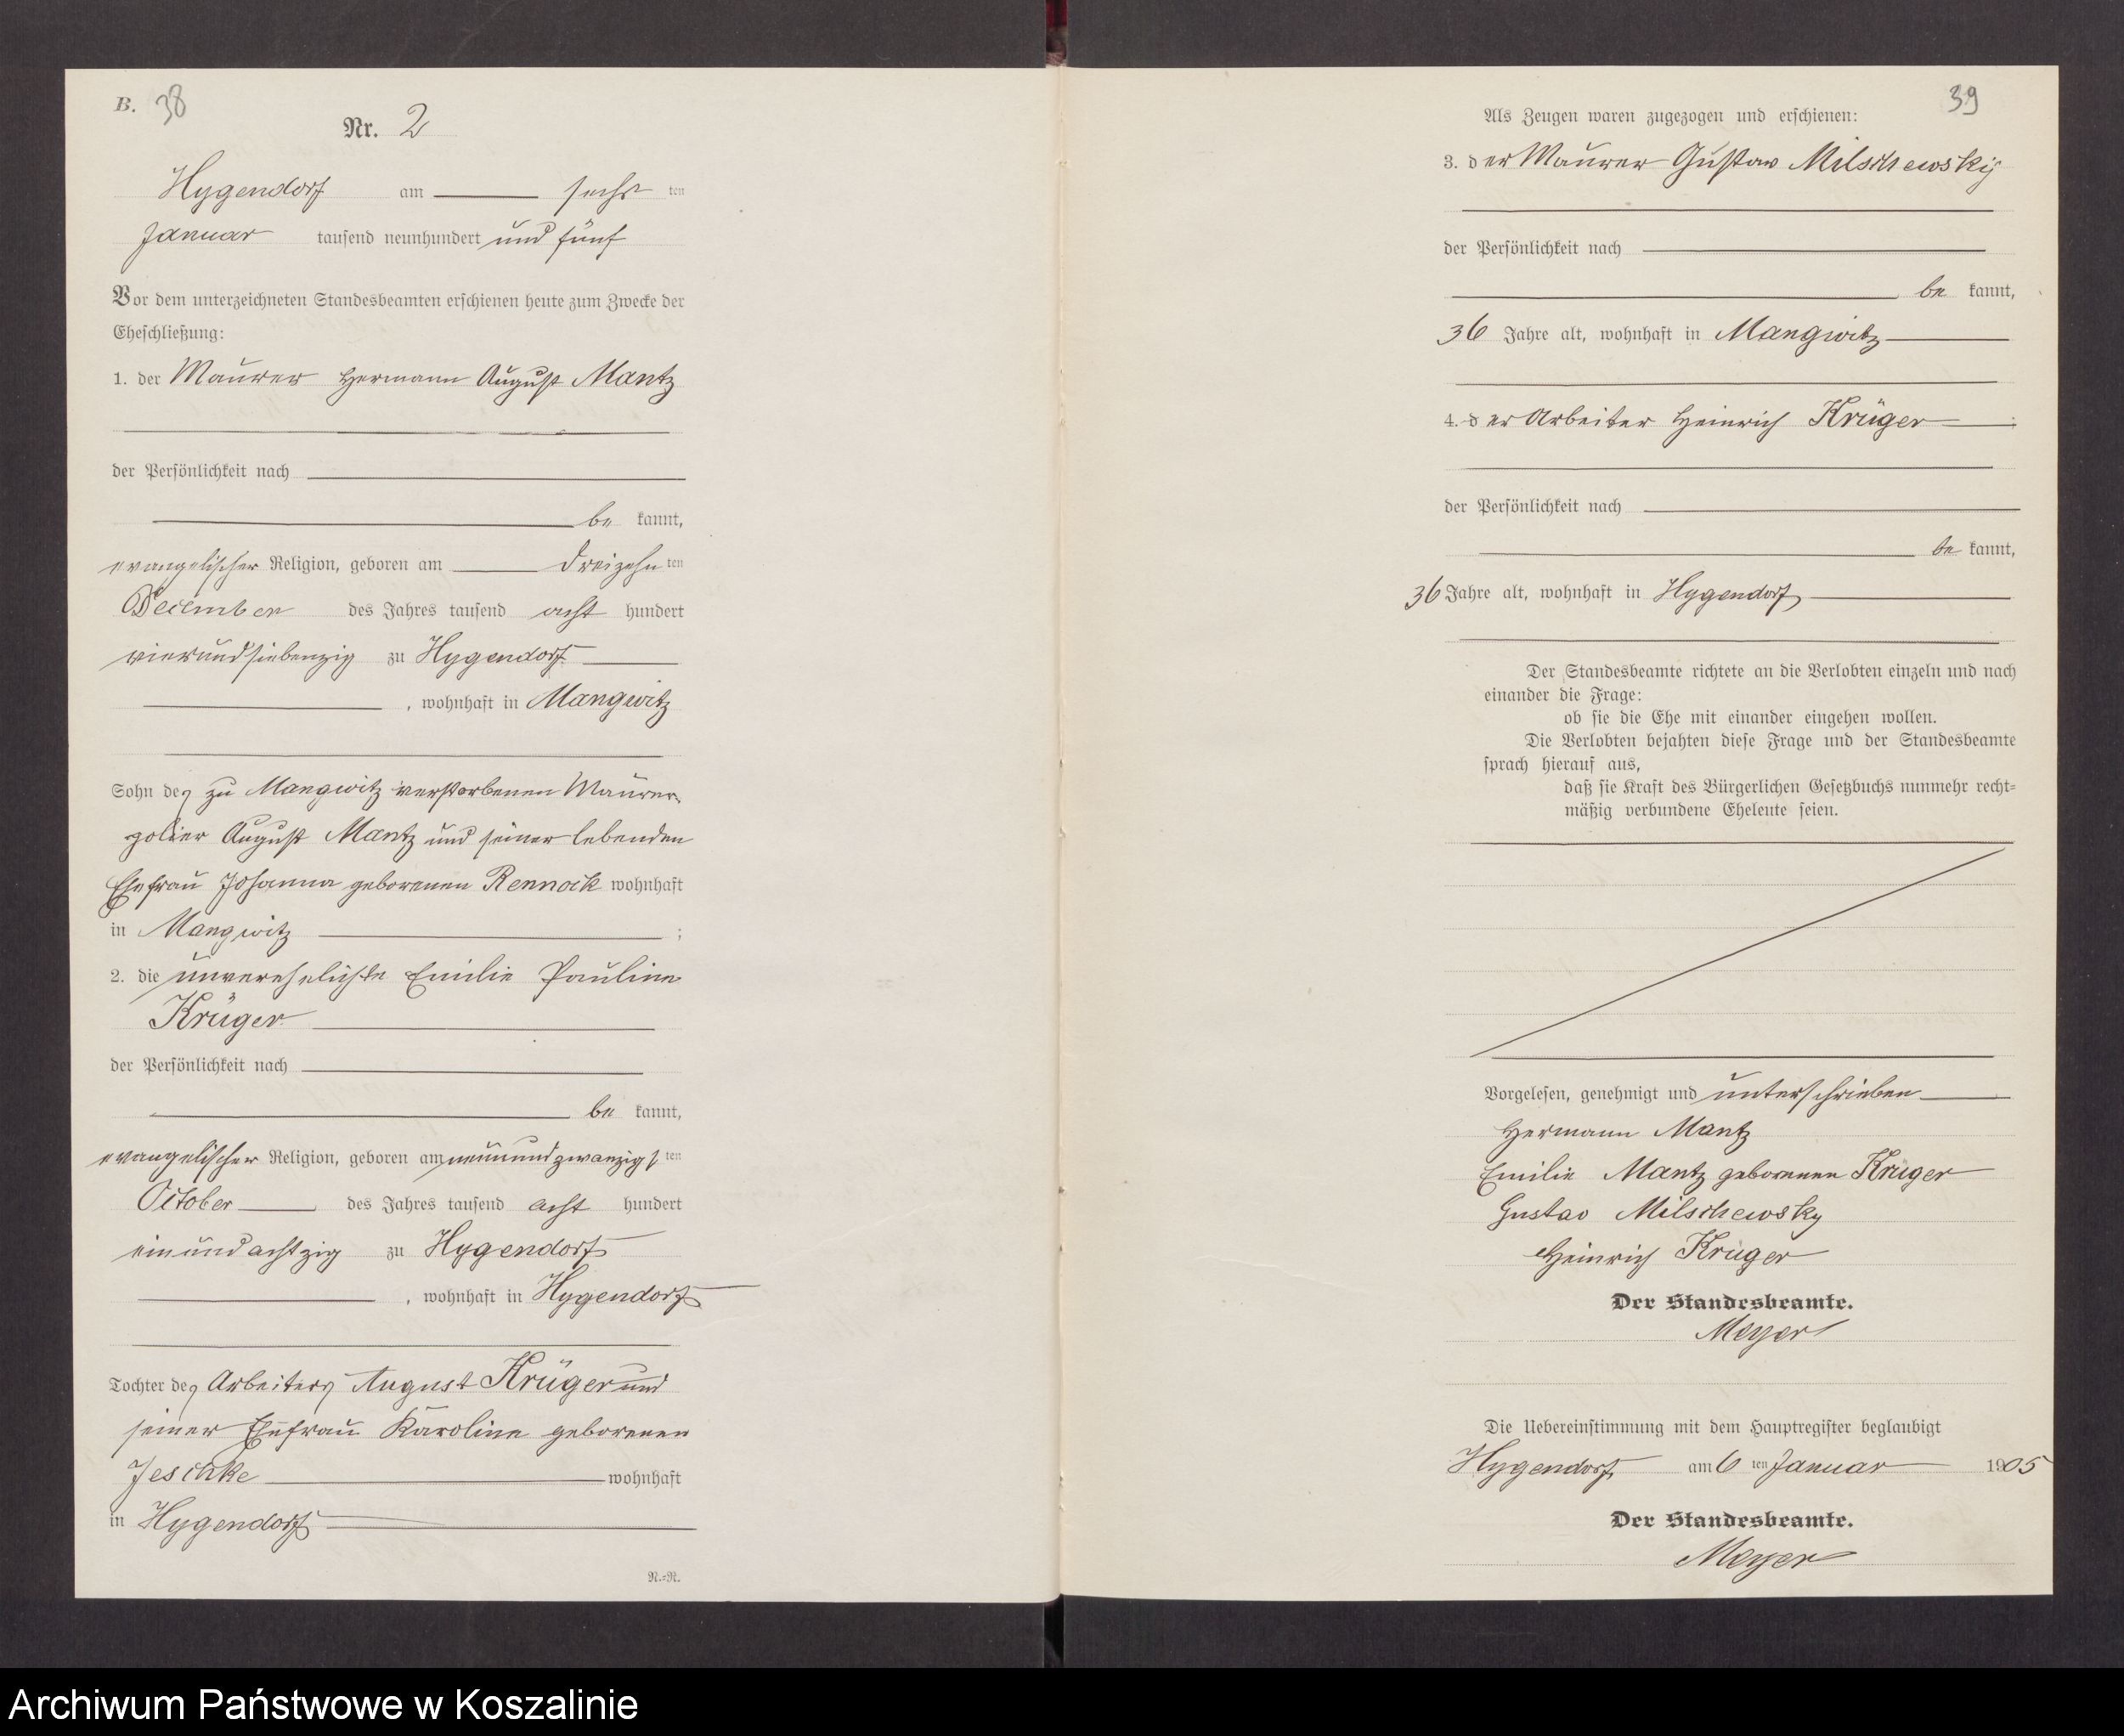 B. 38
Nr. 2
Hygendorf am sechs ten
Januar tausend neunhundert und fünf
Vor dem unterzeichneten Standesbeamten erschienen heute zum Zwecke der
Eheschließung:
1. der Maurer Hermann August Mantz
der Persönlichkeit nach
be kannt,
evangelischer Religion, geboren am dreizehn ten
December des Jahres tausend acht hundert
vierundsiebenzig zu Hygendorf
, wohnhaft in Mangwitz
Sohn des zu Mangwitz verstorbenen Maurer-
polier August Mantz und seiner lebenden
Ehefrau Johanna geborenen Rennock wohnhaft
in Mangwitz ;
2. die unverehelichte Emilie Pauline
Krüger
der Persönlichkeit nach
be kannt,
evangelischer Religion, geboren am neunundzwanzigs ten
October des Jahres tausend acht hundert
einundachtzig zu Hygendorf
, wohnhaft in Hygendorf
Tochter des Arbeiters August Krüger und
seiner Ehefrau Karoline geborenen
Jeschke wohnhaft
in Hygendorf
N.=R.
39
Als Zeugen waren zugezogen und erschienen:
3. der Maurer Gustav Milschewsky
der Persönlichkeit nach
be kannt,
36 Jahre alt, wohnhaft in Mangwitz
4. der Arbeiter Heinrich Krüger ;
der Persönlichkeit nach
be kannt,
36 Jahre alt, wohnhaft in Hygendorf
Der Standesbeamte richtete an die Verlobten einzeln und nach
einander die Frage:
ob sie die Ehe mit einander eingehen wollen.
Die Verlobten bejahten diese Frage und der Standesbeamte
sprach hierauf aus,
daß sie Kraft des Bürgerlichen Gesetzbuchs nunmehr recht=
mäßig verbundene Eheleute seien.
Vorgelesen, genehmigt und unterschrieben
Hermann Mantz
Emilie Mantz geborenen Krüger
Gustav Milschewsky
Heinrich Krüger
Der Standesbeamte.
Meyer
Die Uebereinstimmung mit dem Hauptregister beglaubigt
Hygendorf am 6 ten Januar 1905
Der Standesbeamte.
Meyer
Archiwum Państwowe w Koszalinie